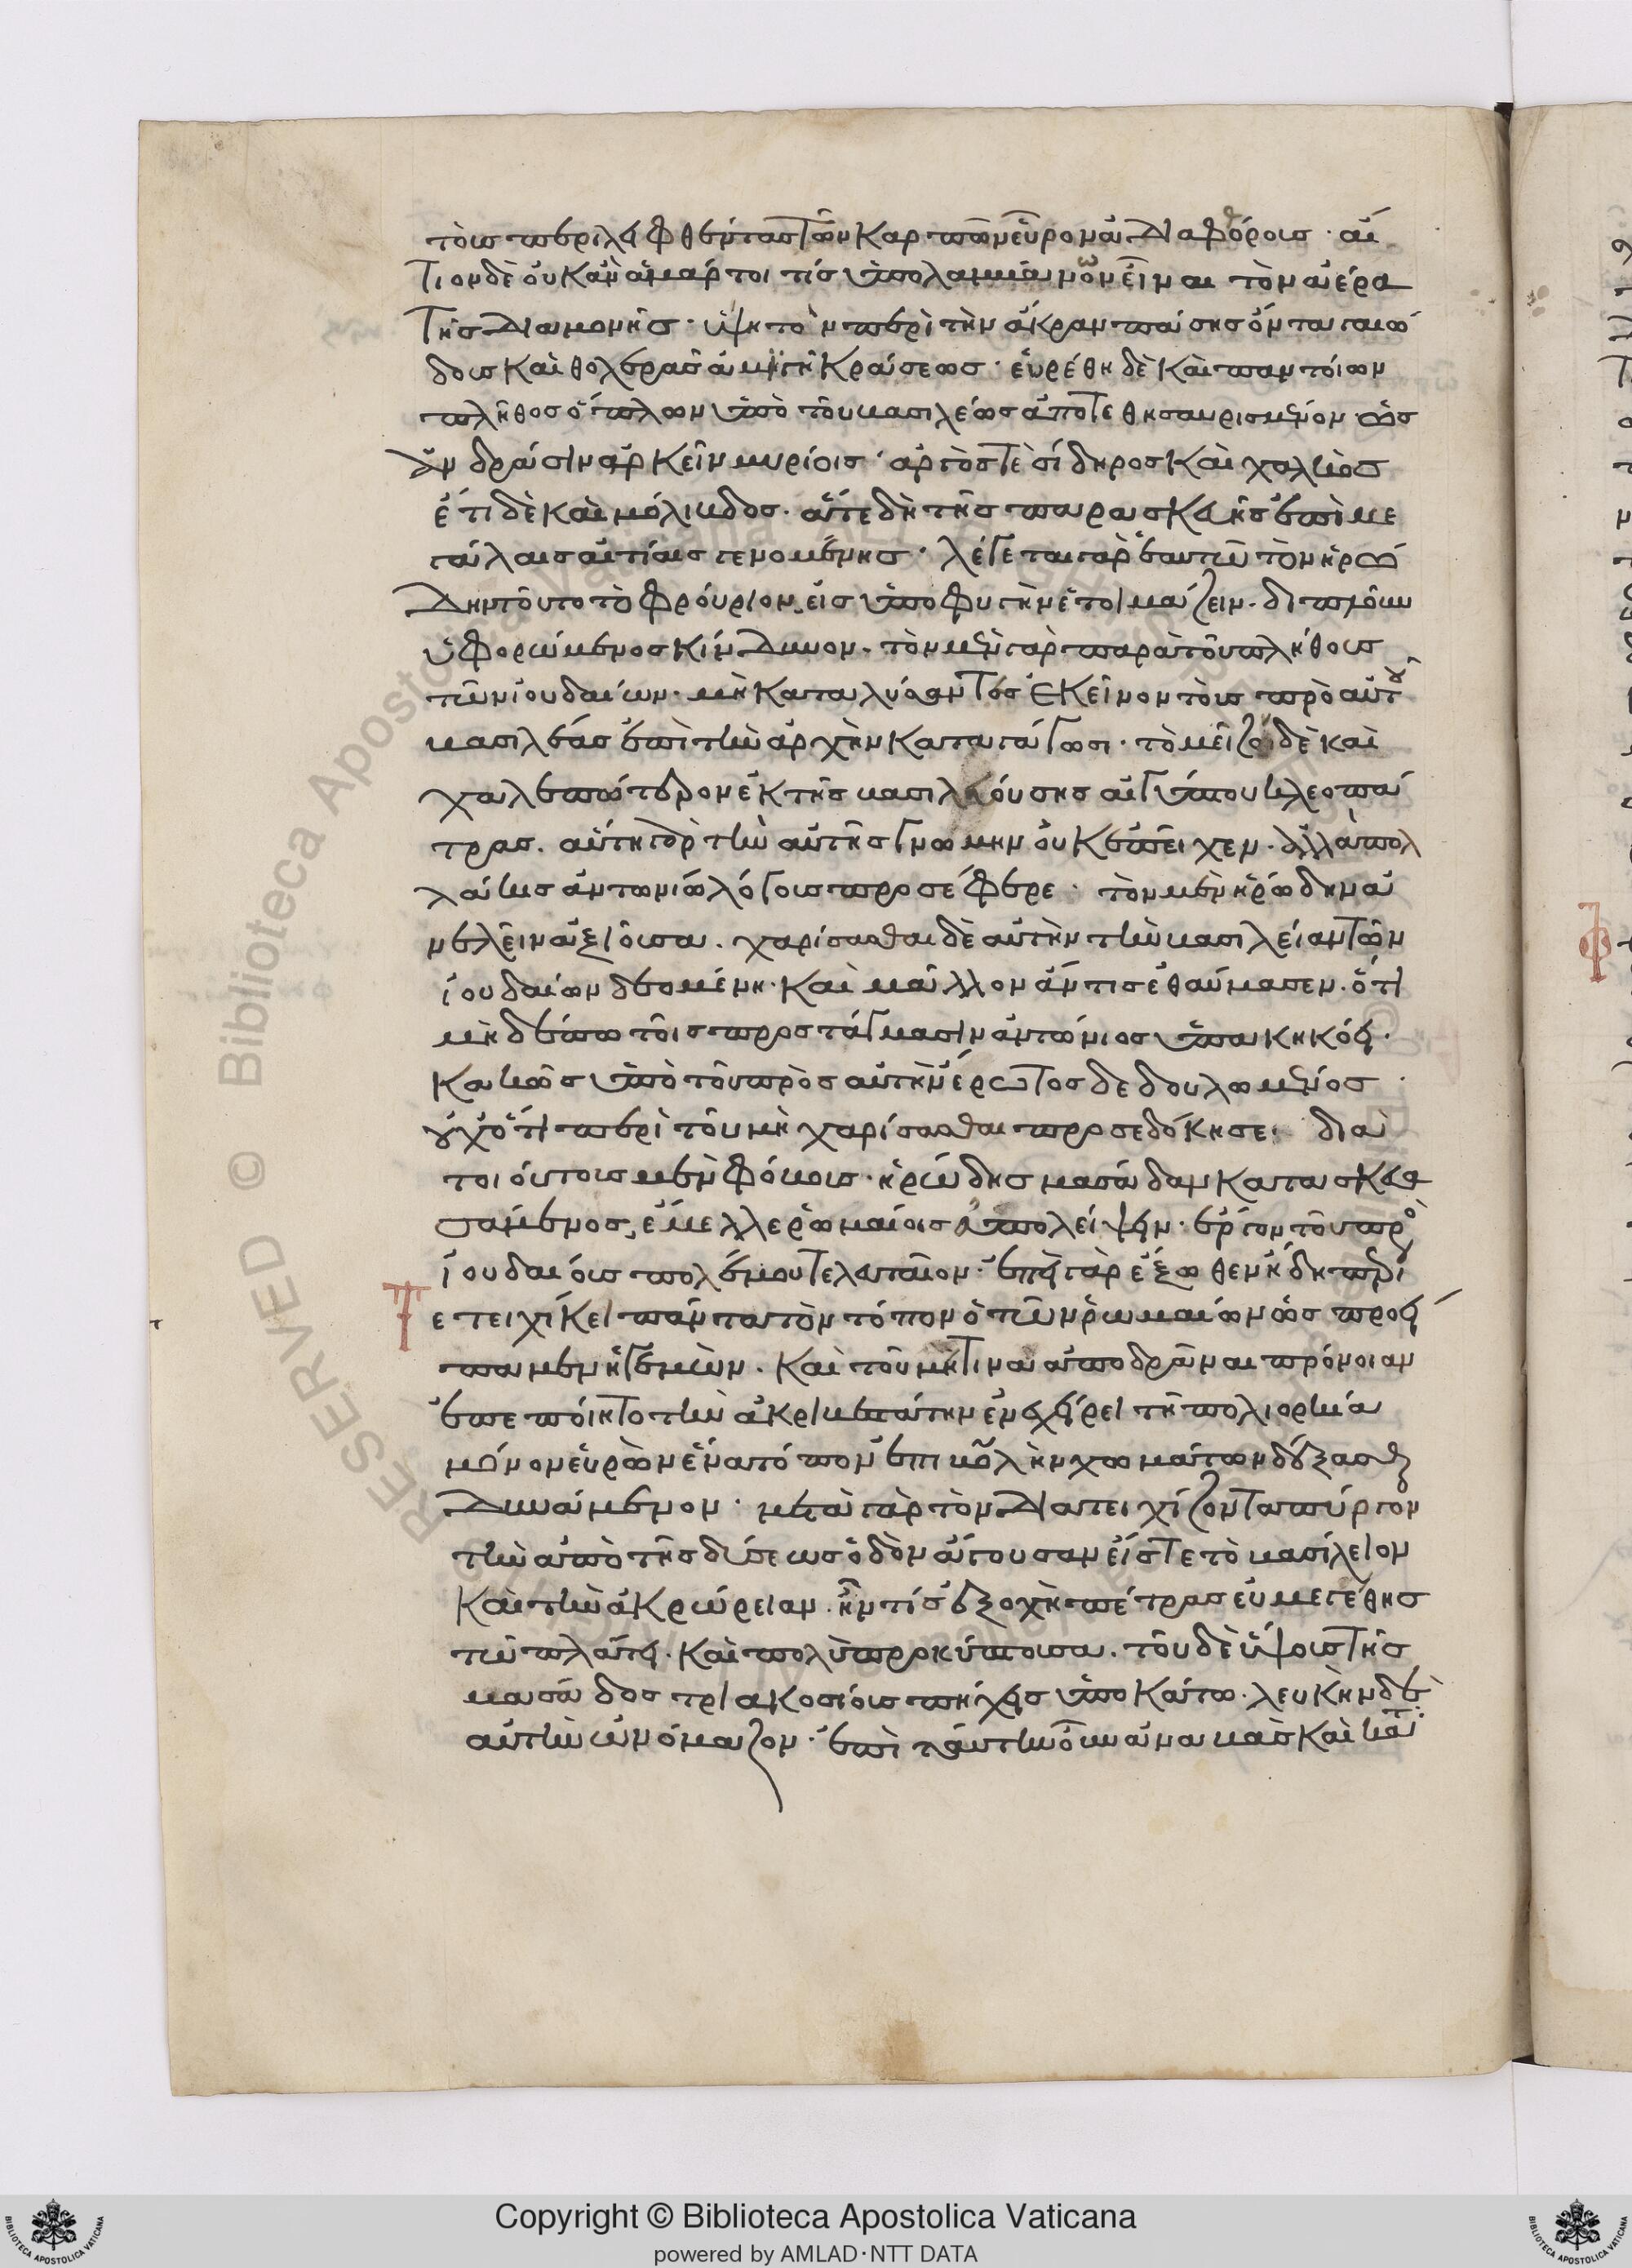 τους περιλειφθέντας τῶν καρπῶν εὗρον ἀδιαφθόρους· αἴ
τιον δὲ οὐκ ἂν ἁμάρτοι τίς ὑπολαμβάνων εἶναι τὸν ἀέρα
τῆς διαμονῆς· ὕψει τὸν περὶ τὴν ἄκραν πάσης ὄντα γαιώ
δους καὶ θολερᾶς ἀμιγῆ κράσεως· εὑρέθη δὲ καὶ παντοίων
πλῆθος ὅπλων ὑπὸ τοῦ βασιλέως ἀποτεθησαυρισμένον ὡς
ἀνδράσιν ἀρκεῖν μυρίοις· ἀργός τε σίδηρος καὶ χαλκὸς
ἔτι δὲ καὶ μόλιβδος. ἅτε δὴ τῆς παρασκευῆς ἐπὶ με
γάλαις αἰτίαις γενομένης· λέγεται γὰρ ἑαυτῶ τὸν ἡρώ
δην τοῦτο τὸ φρούριον εἰς ὑποφυγὴν ἑτοιμάζειν. διπλοῦν
ὑφορώμενος κίνδυνον. τὸν μὲν γὰρ παρὰ τοῦ πλήθους
τῶν ἰουδαίων. μὴ καταλύσαντες ἐκεῖνον τοὺς πρὸ αὐτοῦ
βασιλέας ἐπὶ τὴν ἀρχὴν καταγάγωσι. τὸν μείζω δὲ καὶ
χαλεπώτερον ἐκ τῆς βασιλευούσης αἰγύπτου κλεοπά
τρας. αὕτη γὰρ τὴν αὐτῆς γνώμην οὐκ ἐπεῖχεν. ἀλλὰ πολ
λάκις ἀντωνίω λόγους προσέφερε· τὸν μὲν ἡρώδην ἀ
νελεῖν ἀξιοῦσα. χαρίσασθαι δὲ αὐτὴν τὴν βασιλείαν τῶν
ἰουδαίων δεομένη. καὶ μᾶλλον ἄν τις ἐθαύμασεν. ὅτι
μηδέπω τοῖς προστάγμασιν ἀντώνιος ὑπακηκόει.
κακῶς ὑπὸ τοῦ πρὸς αὐτὴν ἔρωτος δεδουλωμένος
οὐχ ὅτι περὶ τοῦ μὴ χαρίσασθαι προσεδόκησε. διὰ
τοιούτους μὲν φόβους. ἡρώδης μασάδαν κατασκευα
σάμενος, ἔμελλε ῥωμαίοις ἀπολείψειν. ἔργον τοῦ πρὸς
ἰουδαίους πολέμου τελευταῖον· ἐπεὶ γὰρ ἔξωθεν ἤδη περι
ετειχίκει πάντα τὸν τόπον ὁ τῶν ῥωμαίων ὡς προεί
παμεν ἡγεμών. καὶ τοῦ μή τινα ἀποδρᾶναι πρόνοιαν
ἐπεποίητο τὴν ἀκριβεστάτην ἐνεχείρει τῆ πολιορκία
μόνον εὑρὼν ἕνα τόπον ἐπιβολὴν χωμάτων δέξασθαι
δυνάμενον. μετὰ γὰρ τὸν διατειχίζοντα πύργον
τὴν ἀπὸ τῆς δύσεως ὁδὸν ἄγουσαν εἴς τε τὸ βασίλειον
καὶ τὴν ἀκρώρειαν. ἦν τίς ἐξοχὴ πέτρας εὐμεγέθης
τῶ πλάτει. καὶ πολὺ προκύπτουσα. τοῦ δὲ ὕψους τῆς
μασάδος τριακοσίους πήχεις ὑποκάτω. λευκὴν δὲ
αὐτὴν ὠνόμαζον. ἐπὶ ταύτην οὖν ἀναβὰς καὶ κα
Copyright © Biblioteca Apostolica Vaticana
powered by AMLAD·NTT DATA